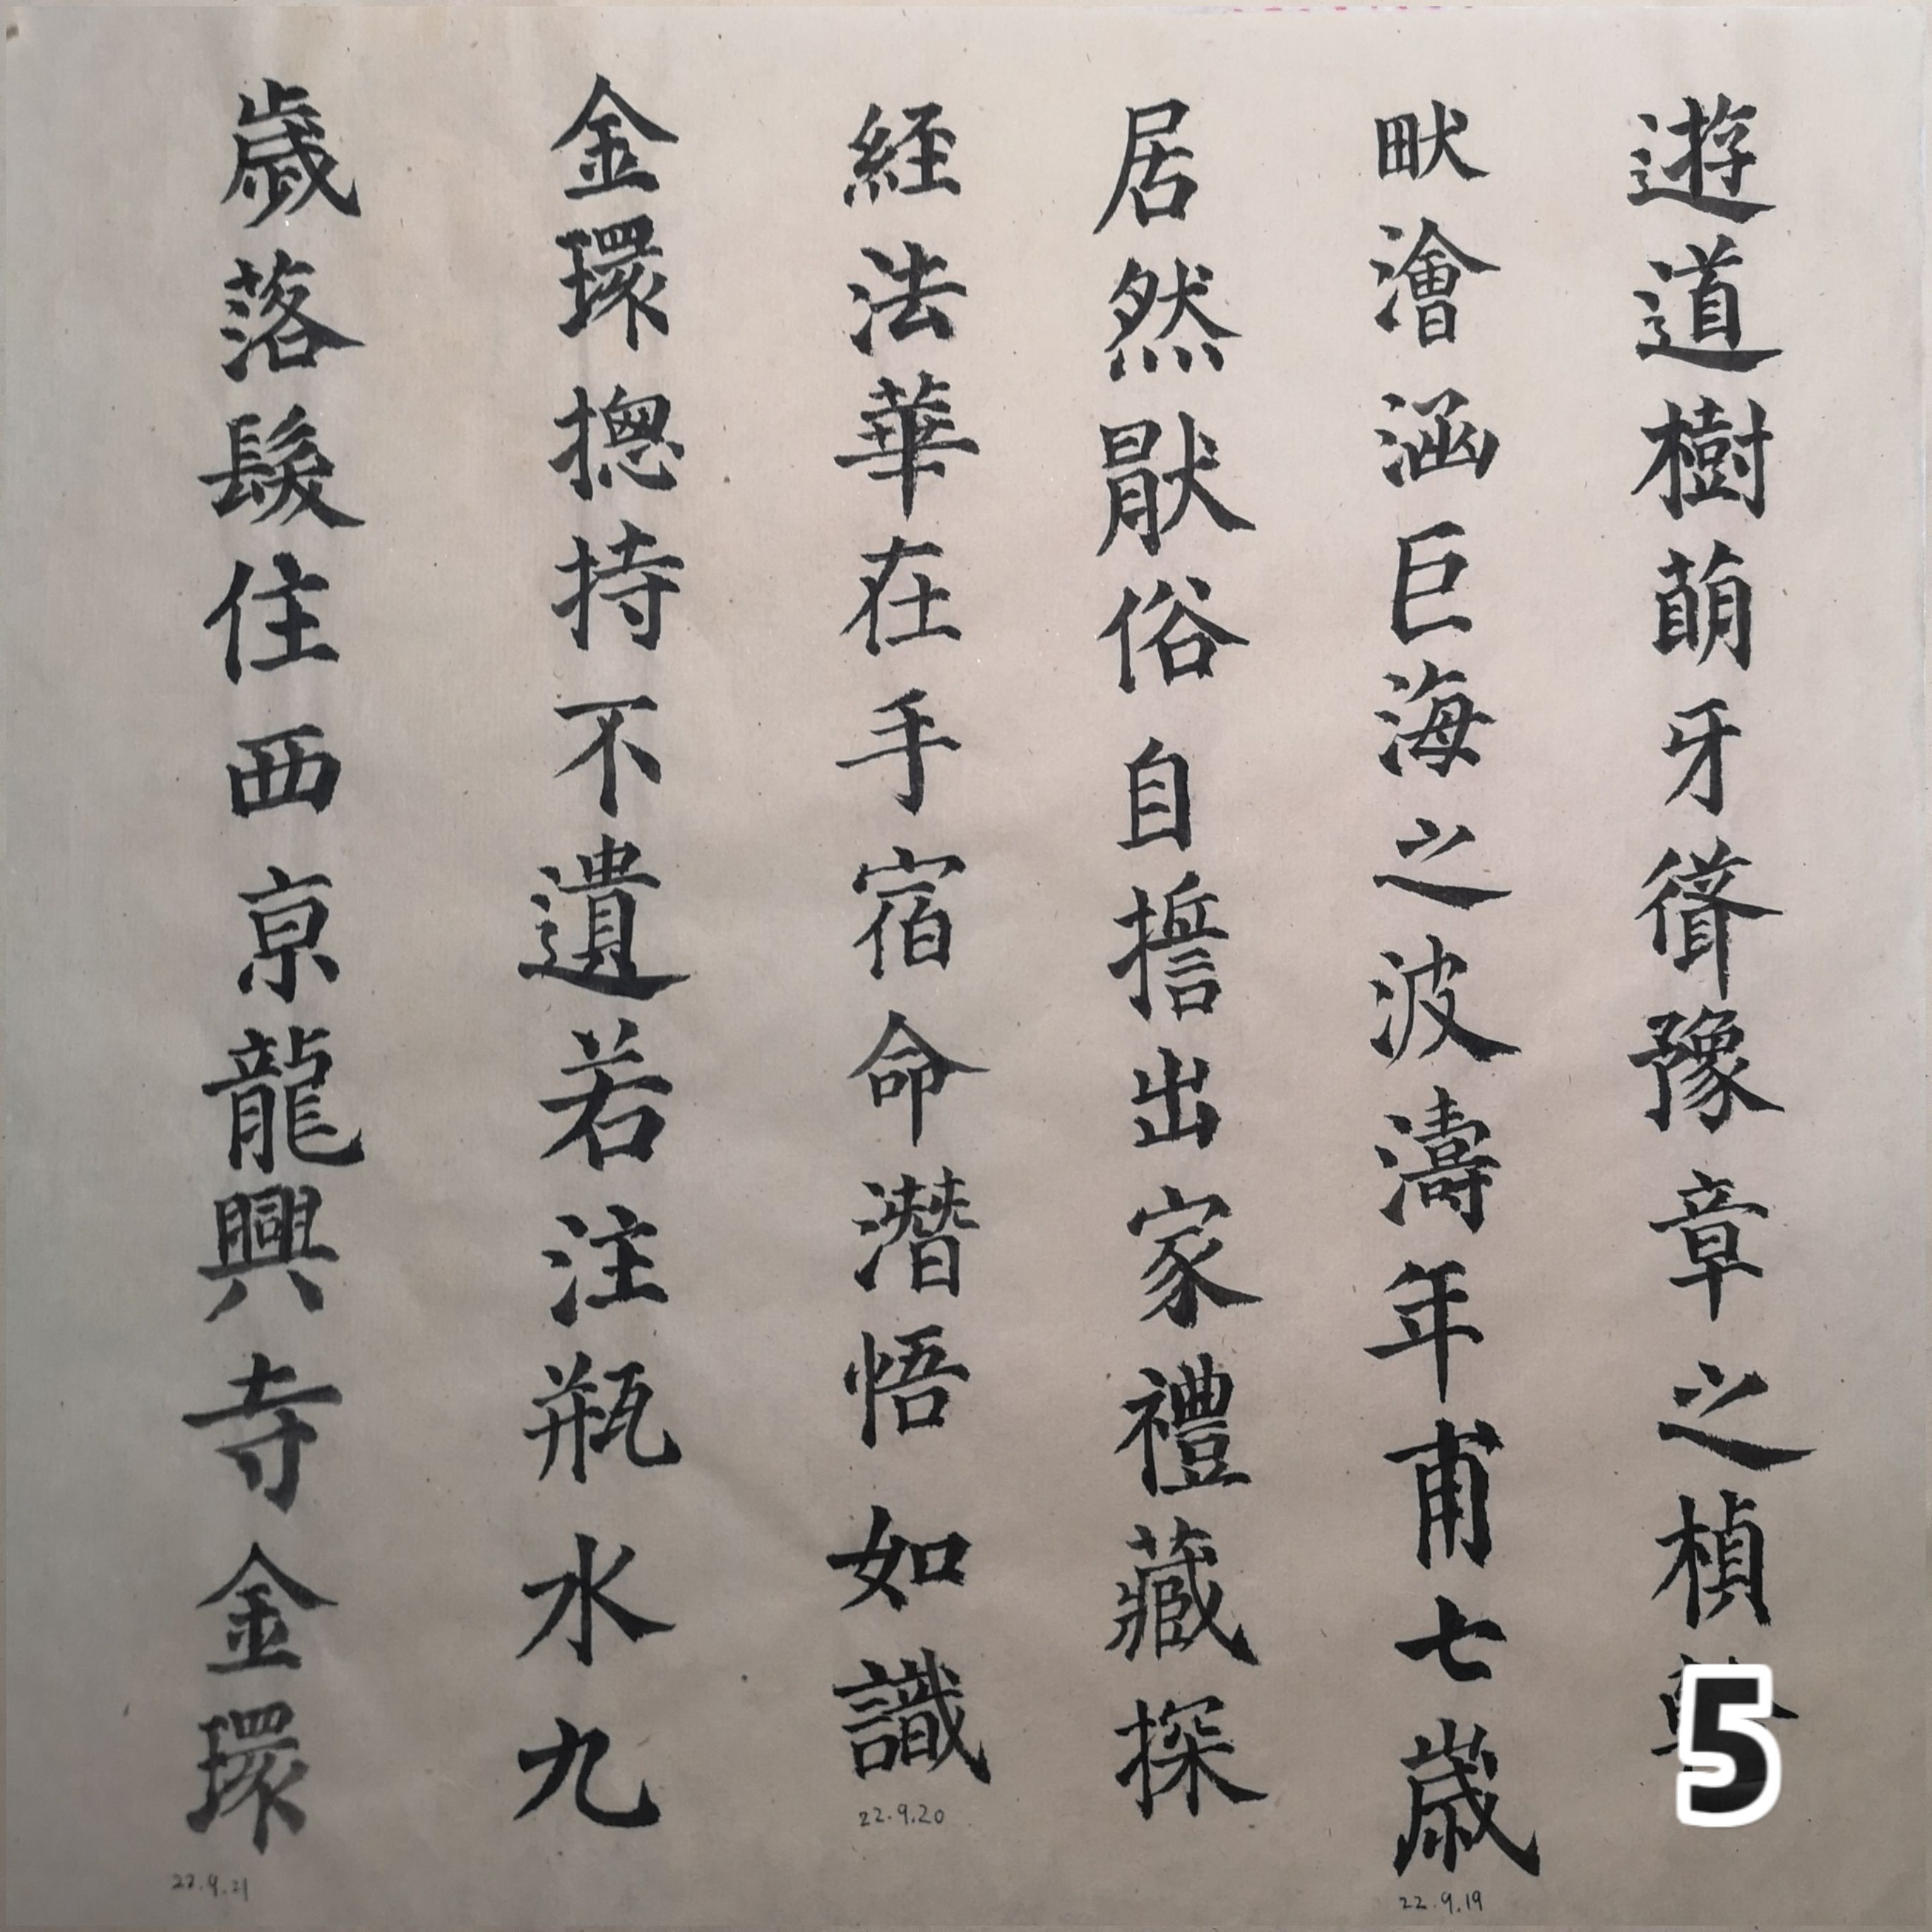 遊道樹萠牙聳豫章之楨
畎澮涵巨海之波濤年甫七歲
22.9.19
居然猒俗自誓出家禮藏探
経法華在手宿命潛悟如識
22.9.20
金環揔持不遺若注瓶水九
歲落髮住西亰龍興寺金環
22.9.21
5